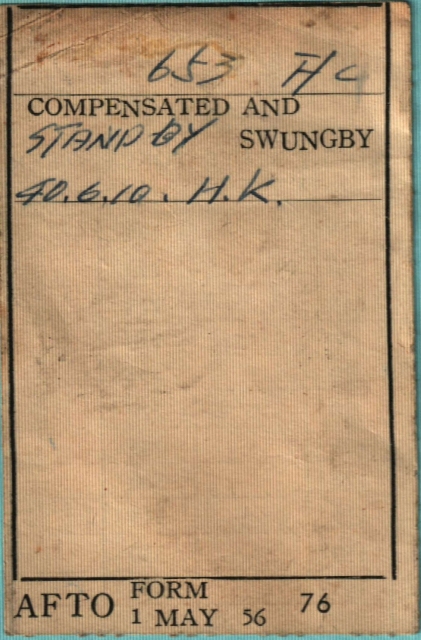 653 F/C
COMPENSATED AND
STAND BY SWUNGBY
40.6.10. H.K.
AFTO FORM 76
1 MAY 56